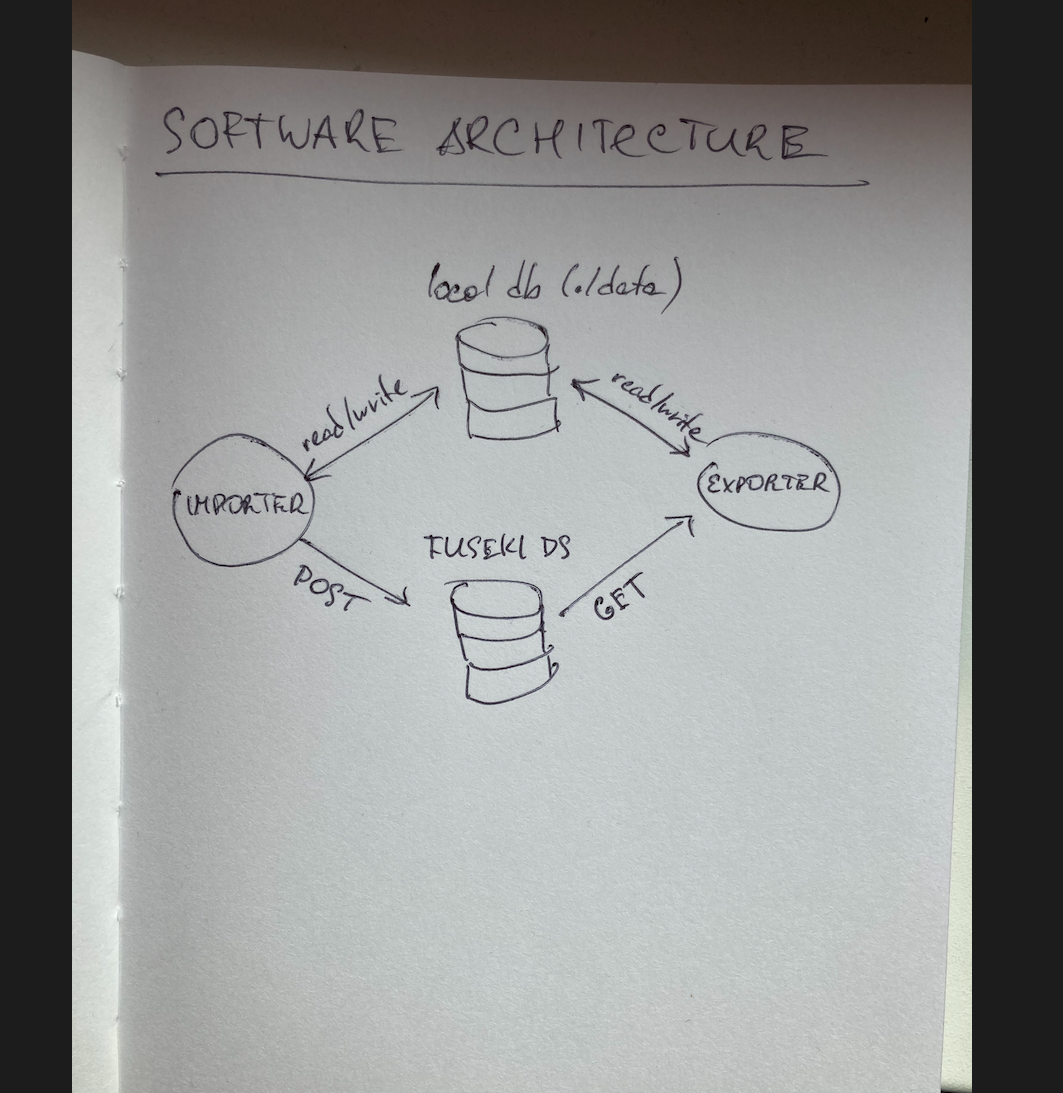 SOFTWARE ARCHITECTURE
local db (./data)
read/write
read/write
IMPORTER
EXPORTER
FUSEKI DS
POST
GET